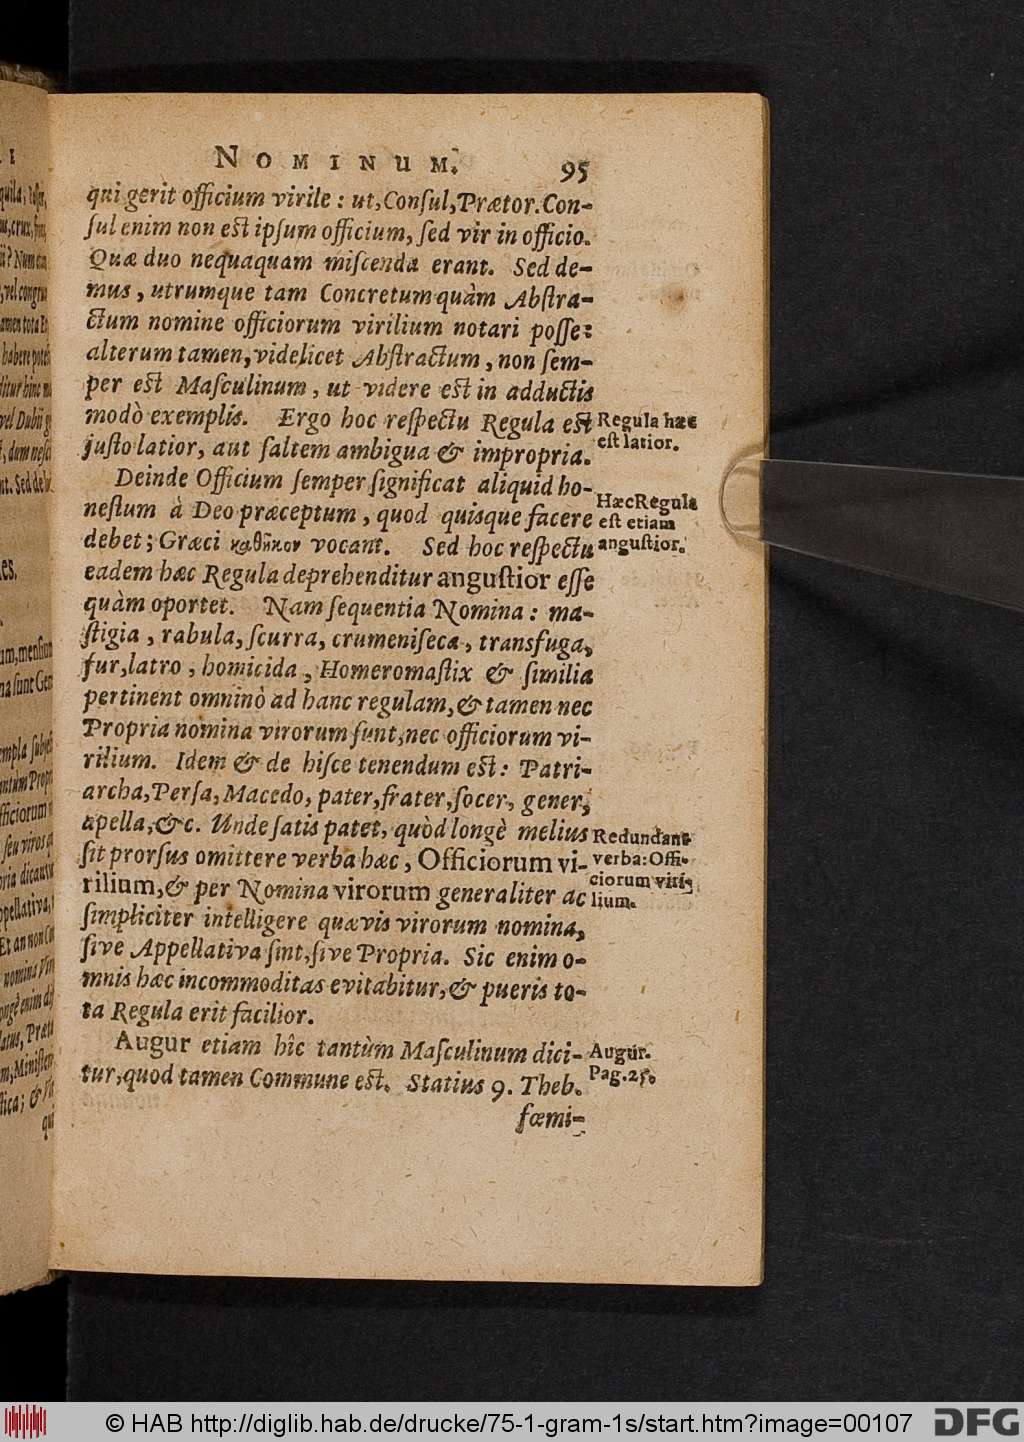 NOMINUM. 95
qui gerit officium virile : ut, Conſul, Prætor. Con-
ſul enim non eſt ipſum officium, ſed vir in officio.
Quæ duo nequaquam miſcenda erant. Sed de-
mus, utrumque tam Concretum quàm Abſtra-
ctum nomine officiorum virilium notari poſſe:
alterum tamen, videlicet Abſtractum, non ſem-
per eſt Maſculinum, ut videre eſt in adductis
modò exemplis. Ergo hoc reſpectu Regula eſt
juſto latior, aut ſaltem ambigua & impropria.
Regula hæc
eſt latior.
Deinde Officium ſemper ſignificat aliquid ho-
neſtum à Deo præceptum, quod quisque facere
debet; Græci καθῆκον vocant. Sed hoc reſpectu
eadem hæc Regula deprehenditur anguſtior eſſe
quàm oportet. Nam ſequentia Nomina: ma-
ſtigia, rabula, ſcurra, crumeniſeca, transfuga,
fur, latro, homicida, Homeromaſtix & ſimilia
pertinent omninò ad hanc regulam, & tamen nec
Propria nomina virorum ſunt, nec officiorum vi-
rilium. Idem & de hiſce tenendum eſt: Patri-
archa, Perſa, Macedo, pater, frater, ſocer, gener,
apella, &c. Unde ſatis patet, quòd longè melius
ſit prorſus omittere verba hæc, Officiorum vi-
rilium, & per Nomina virorum generaliter ac
ſimpliciter intelligere quævis virorum nomina,
ſive Appellativa ſint, ſive Propria. Sic enim o-
mnis hæc incommoditas evitabitur, & pueris to-
ta Regula erit facilior.
Hæc Regula
eſt etiam
anguſtior.
Redundant
verba: Offi-
ciorum viri-
lium.
Augur etiam hîc tantùm Maſculinum dici-
tur, quod tamen Commune eſt. Statius 9. Theb.
Augur.
Pag. 25.
fœmi-
© HAB http://diglib.hab.de/drucke/75-1-gram-1s/start.htm?image=00107
DFG